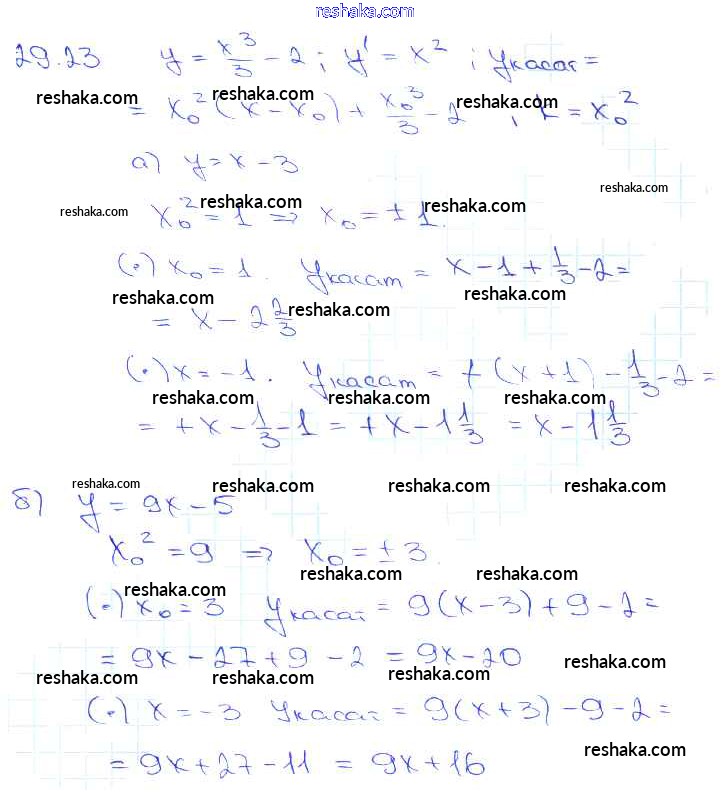 reshaka.com
29.23 y = x³/3 - 2 ; y' = x² ; yкасат =
reshaka.com reshaka.com reshaka.com reshaka.com
= x₀² (x - x₀) + x₀³/3 - 2 ; k = x₀²
а) y = x - 3
reshaka.com
reshaka.com reshaka.com reshaka.com
x₀² = 1 => x₀ = ± 1.
(•) x₀ = 1. yкасат = x - 1 + 1/3 - 2 =
reshaka.com reshaka.com reshaka.com
= x - 2 2/3
(•) x = -1. yкасат = + (x + 1) - 1/3 - 2 =
reshaka.com reshaka.com reshaka.com
= + x - 1/3 - 1 = + x - 1 1/3 = x - 1 1/3
reshaka.com reshaka.com reshaka.com reshaka.com
б) y = 9x - 5
x₀² = 9 => x₀ = ± 3.
reshaka.com reshaka.com reshaka.com
(•) x₀ = 3 yкасат = 9(x - 3) + 9 - 2 =
= 9x - 27 + 9 - 2 = 9x - 20
reshaka.com reshaka.com reshaka.com reshaka.com
(•) x = -3 yкасат = 9(x + 3) - 9 - 2 =
= 9x + 27 - 11 = 9x + 16
reshaka.com